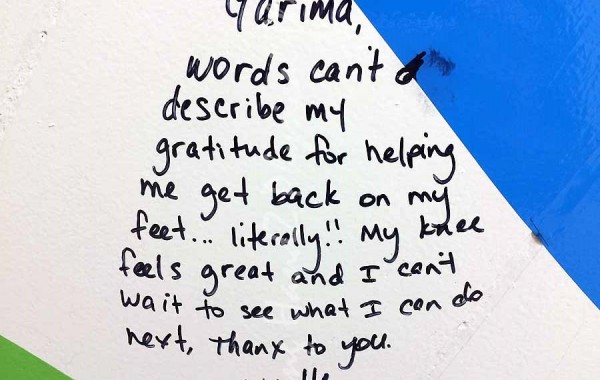 Garima,
words can't d
describe my
gratitude for helping
me get back on my
feet... literally!! My knee
feels great and I can't
wait to see what I can do
next, Thanx to you.